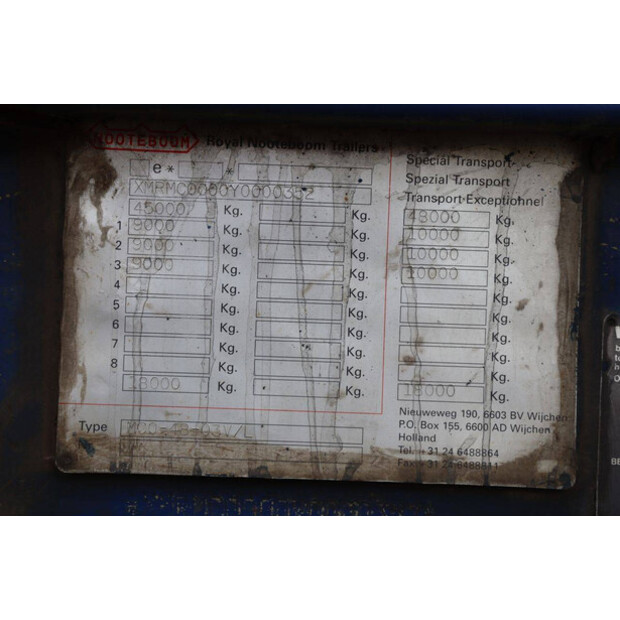 NOOTEBOOM Royal Nooteboom Trailers
e* *
45000 Kg.
1 9000 Kg.
2 9000 Kg.
3 9000 Kg.
4 Kg.
5 Kg.
6 Kg.
7 Kg.
8 Kg.
18000 Kg.
Kg.
Kg.
Kg.
Kg.
Kg.
Kg.
Kg.
Kg.
Kg.
Kg.
Special Transport
Spezial Transport
Transport Exceptionnel
48000 Kg.
10000 Kg.
10000 Kg.
10000 Kg.
Kg.
Kg.
Kg.
Kg.
Kg.
18000 Kg.
Type
Nieuweweg 190, 6603 BV Wijchen
P.O. Box 155, 6600 AD Wijchen
Holland
Tel. +31 24 6488864
Fax +31 24 6488811